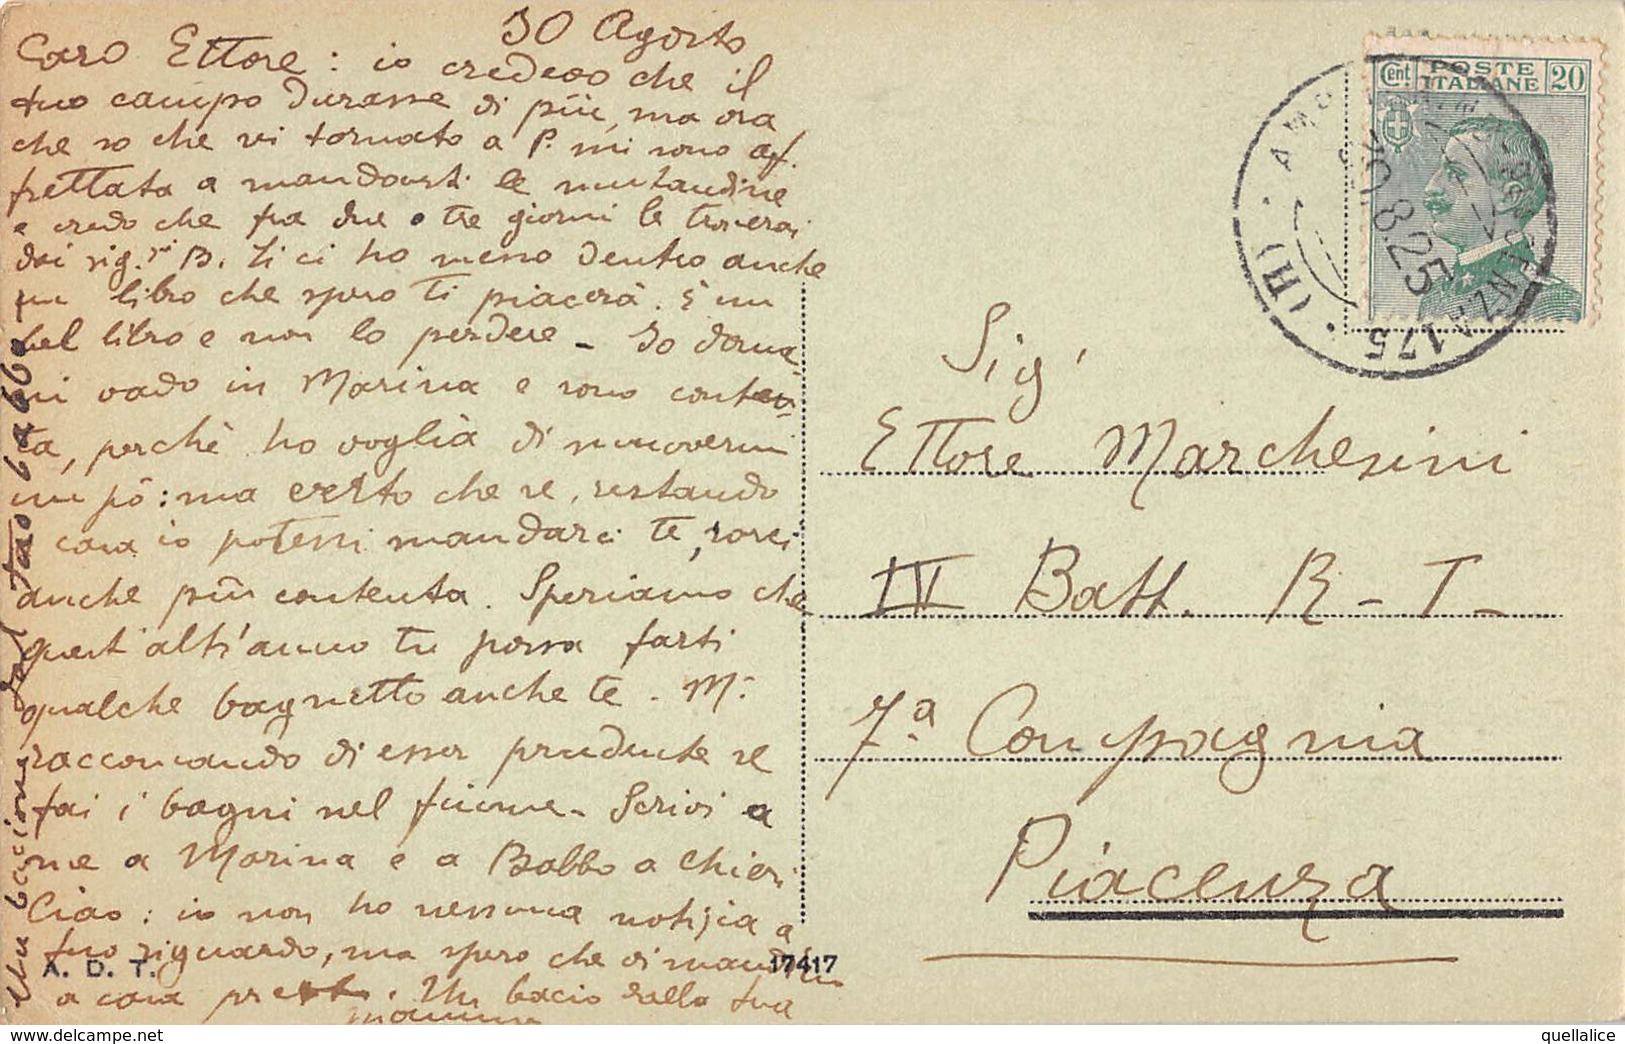 30 Agosto
Caro Ettore: io credevo che il
tuo campo durasse di più, ma ora
che so che vi tornato a P. mi sono af-
frettata a mandarti le mutandine
e credo che fra due o tre giorni le troverai
dai sig.ri B. Ti ci ho messo dentro anche
un libro che spero ti piacerà. È un
bel libro e non lo perdere - Io doma-
ni vado in Marina e sono conten-
ta, perchè ho voglia di muovermi
un pò: ma certo che se, restando
a casa io potessi mandarci te, sarei
anche più contenta. Speriamo che
quest'altr'anno tu possa farti
qualche bagnetto anche te. Mi
raccomando di esser prudente se
fai i bagni nel fiume - Scrivi a
me a Marina e a Babbo a Chieri
Ciao: io non ho nessuna notizia a
tuo riguardo, ma spero che ti mandino
a casa presto. Un bacio dalla tua
mamma
Un bacione dal tuo babbo
A. D. T.
17417
Cent. POSTE ITALIANE 20
30.8.25
175
(H)
Sig.
Ettore Marchesini
IV Batt. R-T-
7ª Compagnia
Piacenza
quellalice